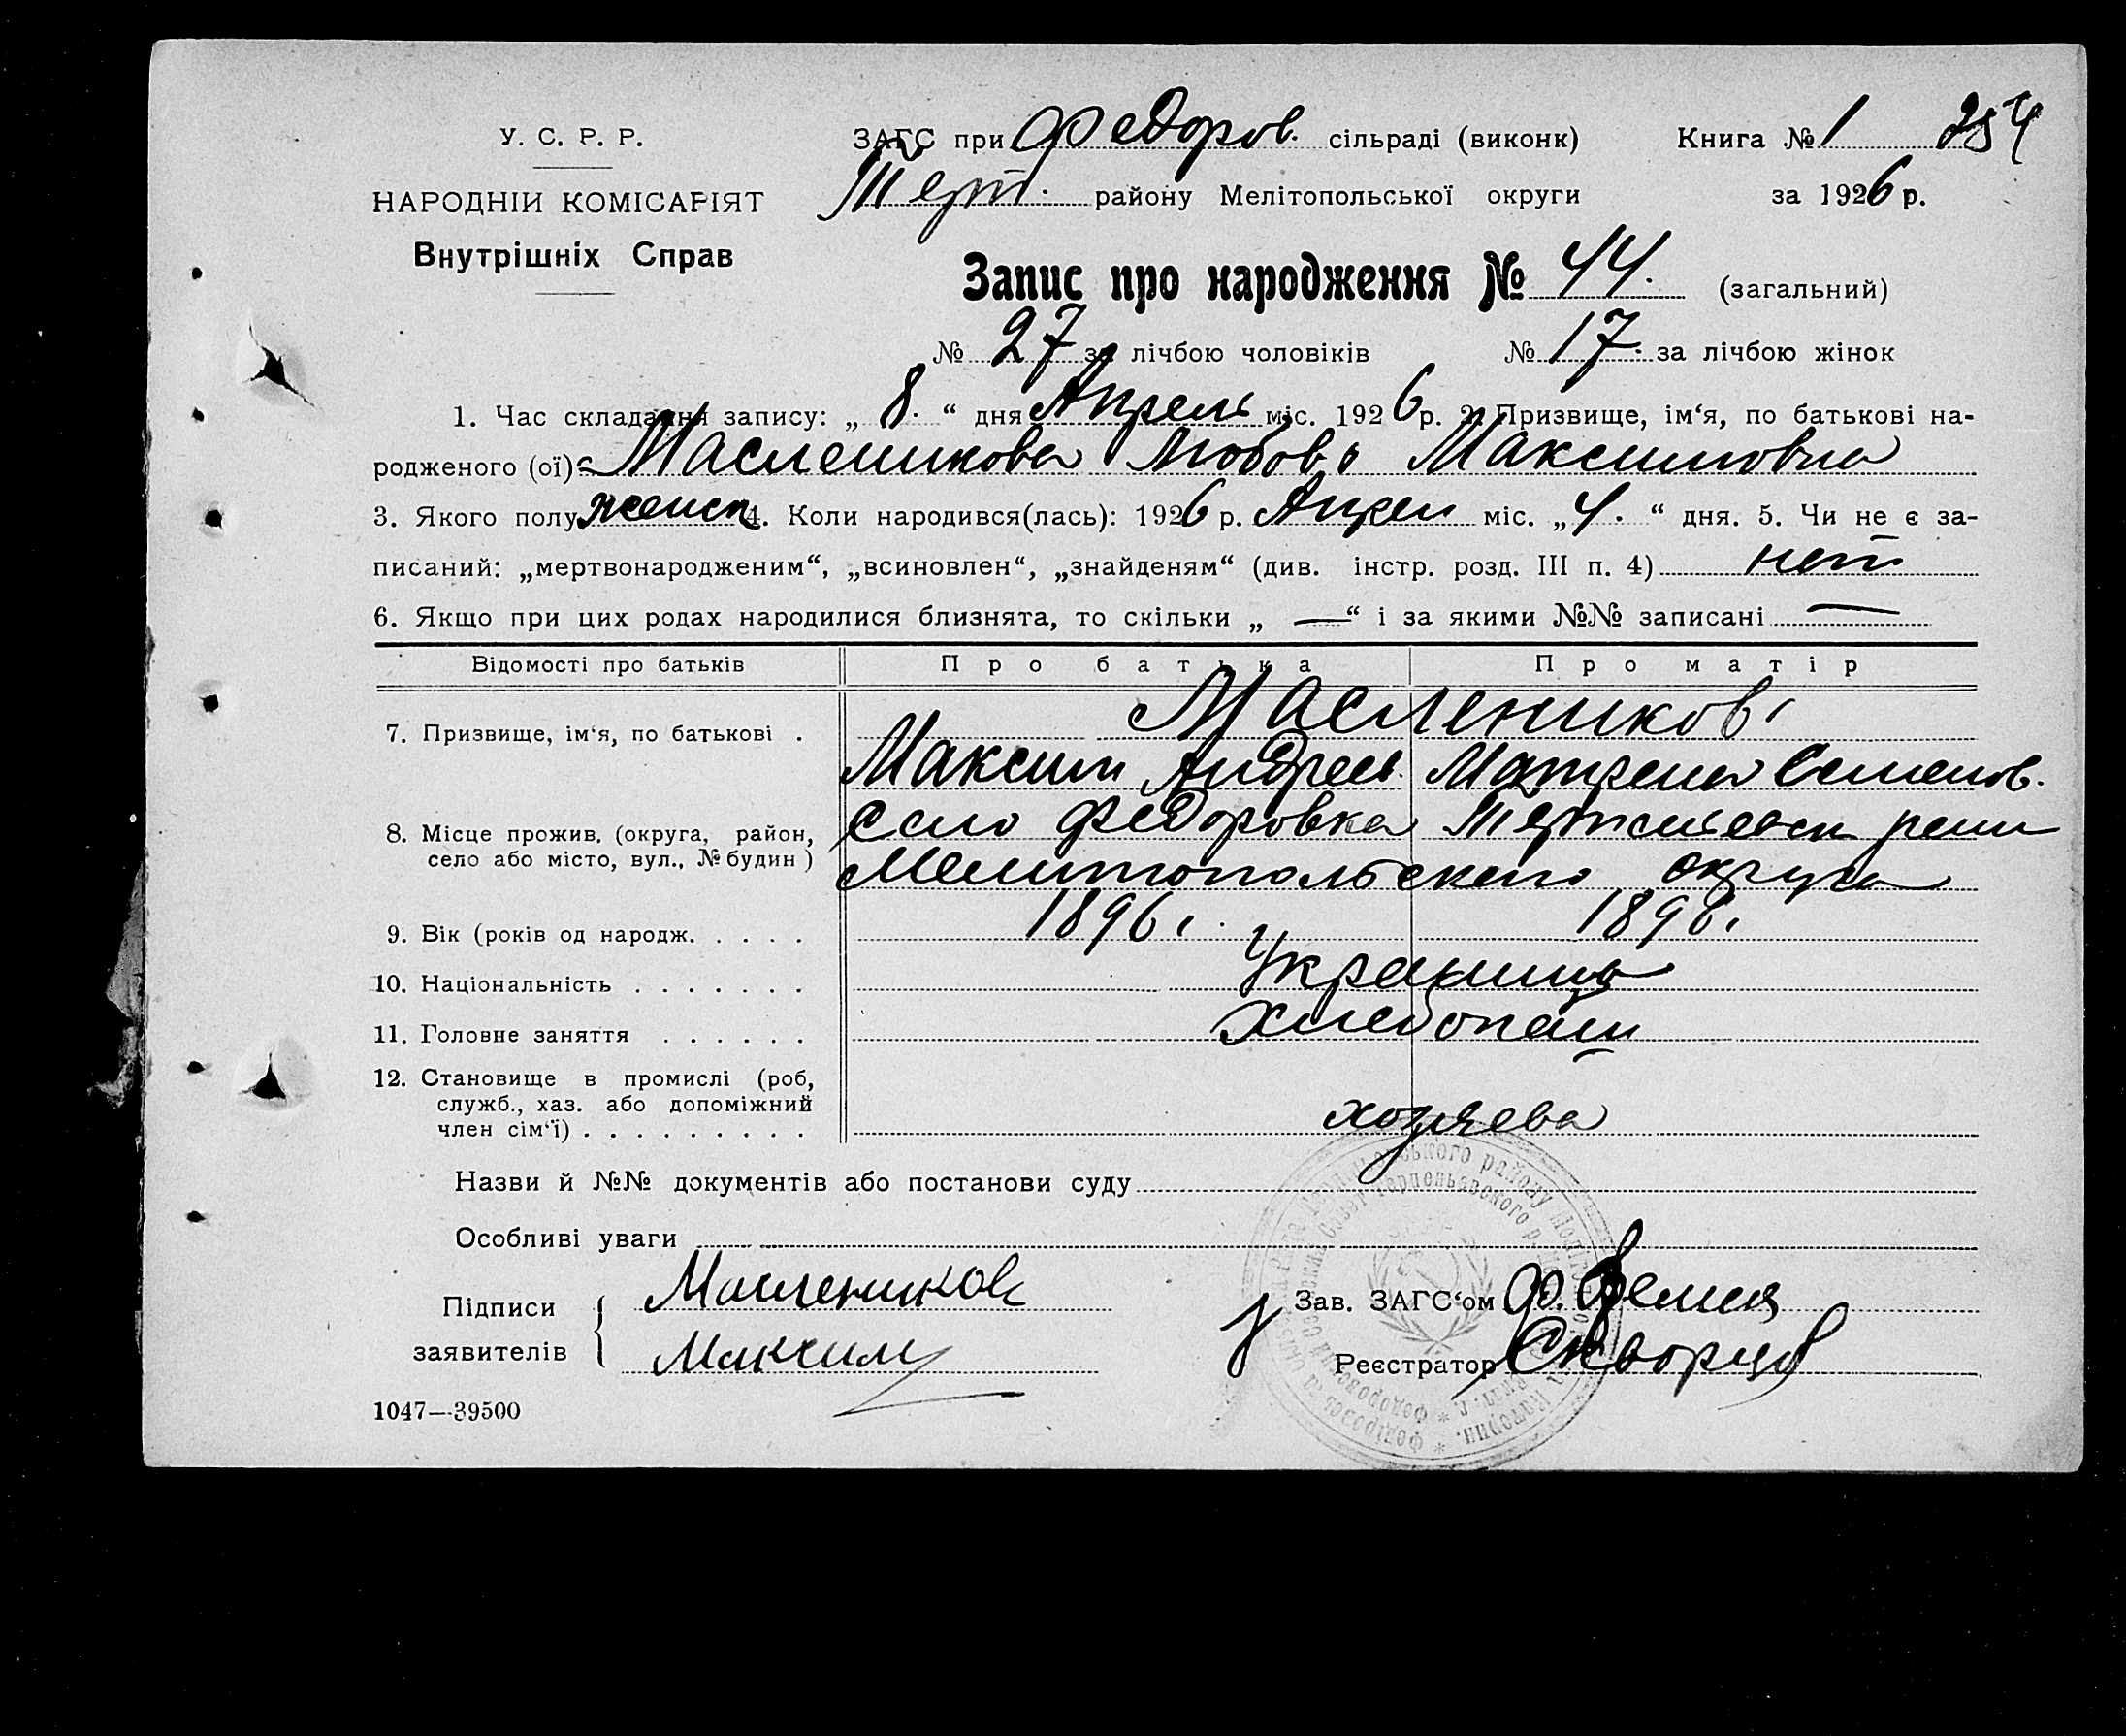 У. С. Р. Р.
НАРОДНІЙ КОМІСАРІЯТ
Внутрішніх Справ
ЗАГС при Федоров. сільраді (виконк) Книга № 1 254
Терп. району Мелітопольської округи за 1926 р.
Запис про народження № 44. (загальний)
№ 27 за лічбою чоловіків № 17. за лічбою жінок
1. Час складання запису: „ 8. “ дня Апрель міс. 1926 р. 2. Призвище, ім‘я, по батькові на-
родженого (ої) Маслешикова Любовь Максимовна
3. Якого полу женск 4. Коли народився(лась): 1926 р. Апрел міс. „4.“ дня. 5. Чи не є за-
писаний: „мертвонародженим“, „всиновлен“, „знайденям“ (див. інстр. розд. III п. 4) нет
6. Якщо при цих родах народилися близнята, то скільки „ — “ і за якими №№ записані —
Відомості про батьків Про батька Про матір
7. Призвище, ім‘я, по батькові . Маслеников
Максим Андреев. Матрена Семенов.
8. Місце прожив. (округа, район, село або місто, вул., № будин ) село Федоровка
Мелитопольского округа
9. Вік (років од народж. . . . . 1896 г. 1898.
10. Національність . . . . . . . Украинцы
11. Головне заняття . . . . . . Хлебопаш
12. Становище в промислі (роб,
служб., хаз. або допоміжний
член сім‘ї) . . . . . . . . . хозяева
Назви й №№ документів або постанови суду
Особливі уваги
Підписи заявителів Маслеников
Максим
Зав. ЗАГС‘ом
Реєстратор Скворцов
1047—39500